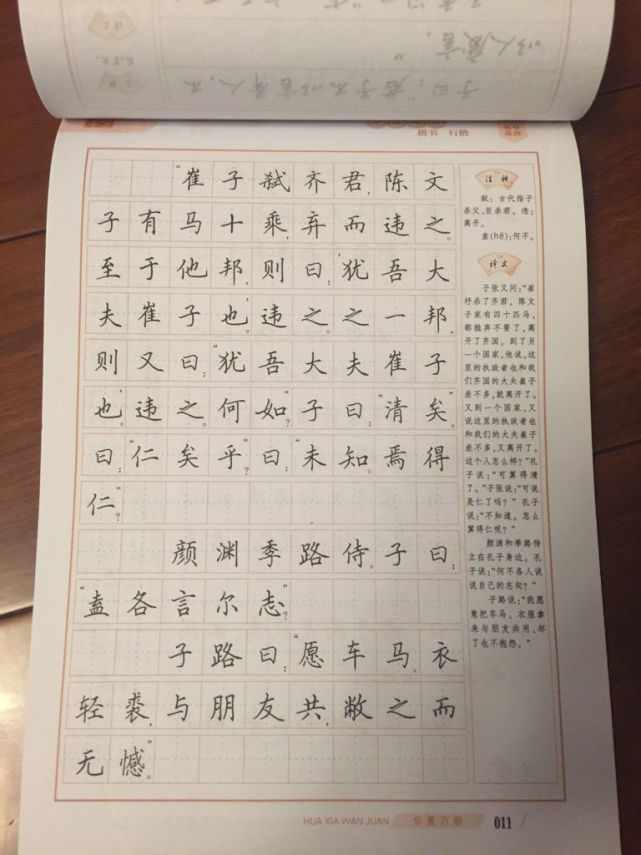 楷书 行楷
“崔子弑齐君，陈文
子有马十乘，弃而违之。
至于他邦，则曰：‘犹吾大
夫崔子也。’违之。之一邦，
则又曰：‘犹吾大夫崔子
也。’违之。何如？”子曰：“清矣。”
曰：“仁矣乎？”曰：“未知。焉得
仁？”
颜渊季路侍。子曰：
“盍各言尔志？”
子路曰：“愿车马、衣
轻裘，与朋友共，敝之而
无憾。”
注释
弑：古代指子
杀父、臣杀君。违：
离开。
盍(hé)：何不。
译文
子张又问：“崔
杼杀了齐君，陈文
子家有四十匹马，
都抛弃不要了，离
开了齐国。到了另
一个国家，他说，这
里的执政者也和我
们齐国的大夫崔子
差不多，就离开了。
又到一个国家，又
说这里的执政者也
和我们的大夫崔子
差不多，又离开了。
这个人怎么样？”孔
子说：“可算得清
了。”子张说：“可说
是仁了吗？”孔子
说：“不知道。怎么
算得仁呢？”
颜渊和季路侍
立在孔子身边。孔
子说：“何不各人说
说自己的志向？”
子路说：“我愿
意把车马、衣服拿
来与朋友共用，坏
了也不抱怨。”
HUA XIA WAN JUAN 华夏万卷 011